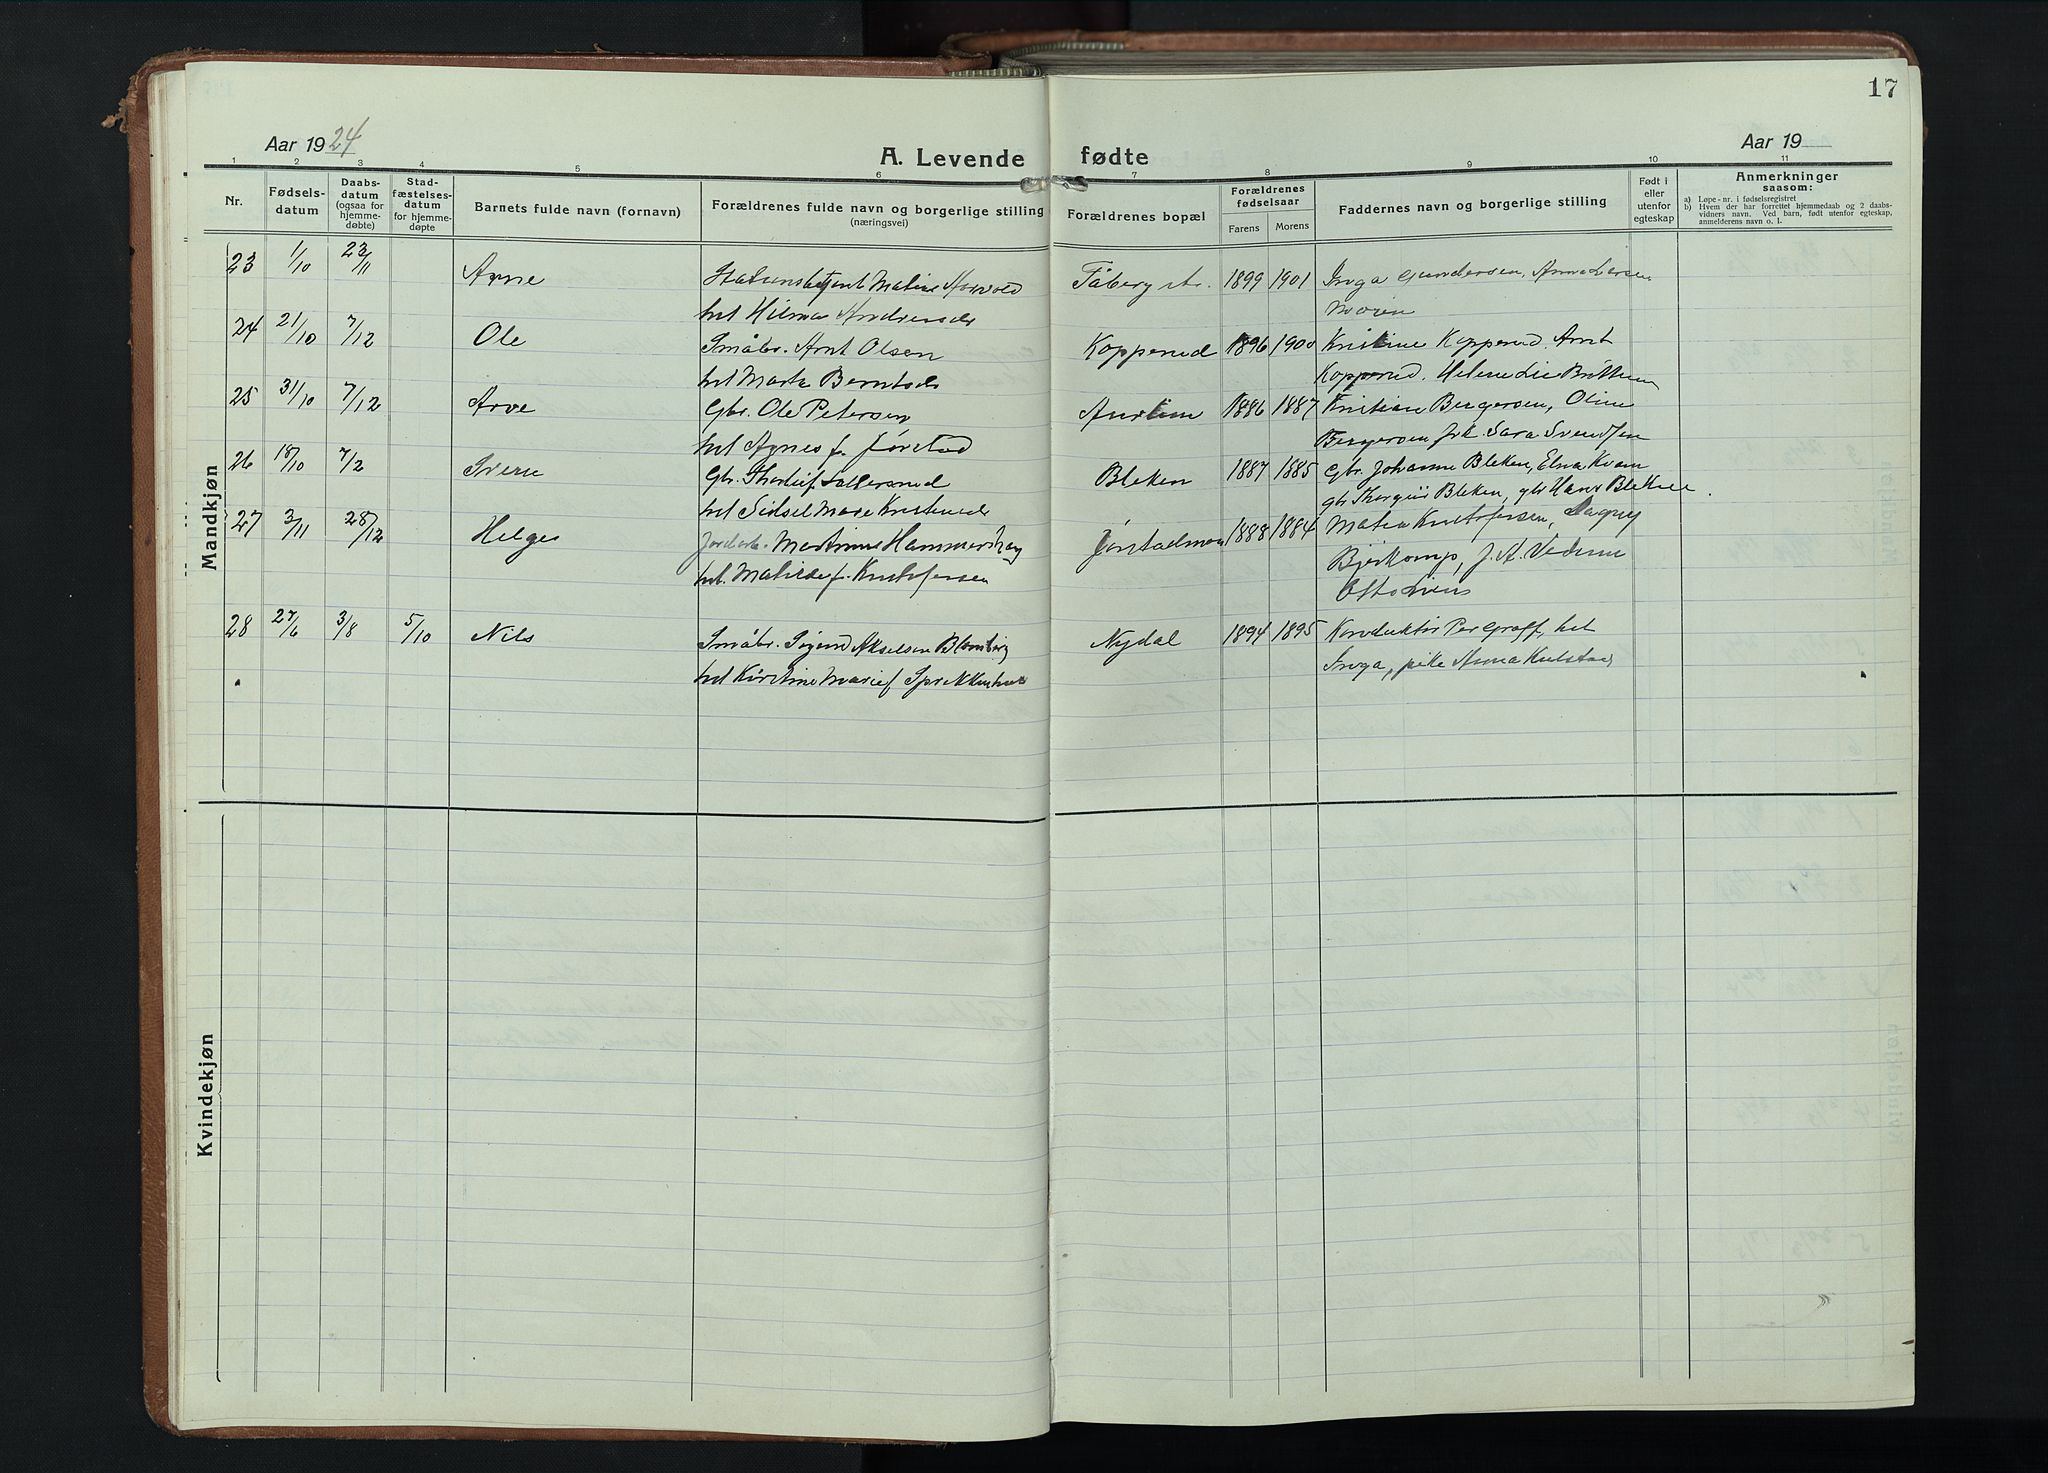 17
Aar 1924
A. Levende fødte
Aar 19
1 2 3 4 5 6 7 8 9 10 11
Nr.
Fødsels-
datum
Daabs-
datum
(ogsaa for
hjemme-
døbte)
Stad-
fæstelses-
datum
for hjemme-
døpte
Barnets fulde navn (fornavn)
Forældrenes fulde navn og borgerlige stilling
(næringsvei)
Forældrenes bopæl
Forældrenes
fødselsaar
Farens Morens
Faddernes navn og borgerlige stilling
Født i
eller
utenfor
egteskap
Anmerkninger
saasom:
a) Løpe-nr. i fødselsregistret
b) Hvem der har forrettet hjemmedaab og 2 daabs-
vidners navn. Ved barn, født utenfor egteskap,
anmelderens navn o. l.
Mandkjøn
23 1/10 23/11 Arne Stationsbetjent Mathias 1899 1901 Inga Gundersen, Anna Larsen
hst Hilma Moren
24 21/10 7/12 Ole Småbr. Arnt Olsen Kopperud 1896 1900 Kristine Kopperud, Arnt
hst Marta Berntsdr Kopperud, Helene Lie
25 31/10 7/12 Arve Gbr. Ole Petersen 1886 1887 Kristian Bergersen, Oline
hst Agnes f. Jørstad Bergersen, frk. Sara Svendsen
26 18/10 7/2 Sverre Gbr. Bleken 1887 1885 Gbr. Johannes Bleken, Elna Kvam
hst Sidsel Marie gbr Bleken, gbr Hans Bleken.
27 3/11 28/12 Helge Martinus Hammershaug 1888 1884 Kristofersen, Dagny
hst. Matilde f. Kristofersen J. A.
Otto
28 27/6 3/8 5/10 Nils Småbr. Sigurd Akselsen Blomberg Nydal 1894 1895 Konduktør Per Graff, hst
hst Kirstine Marie f Inga, pike Anna
Kvindekjøn